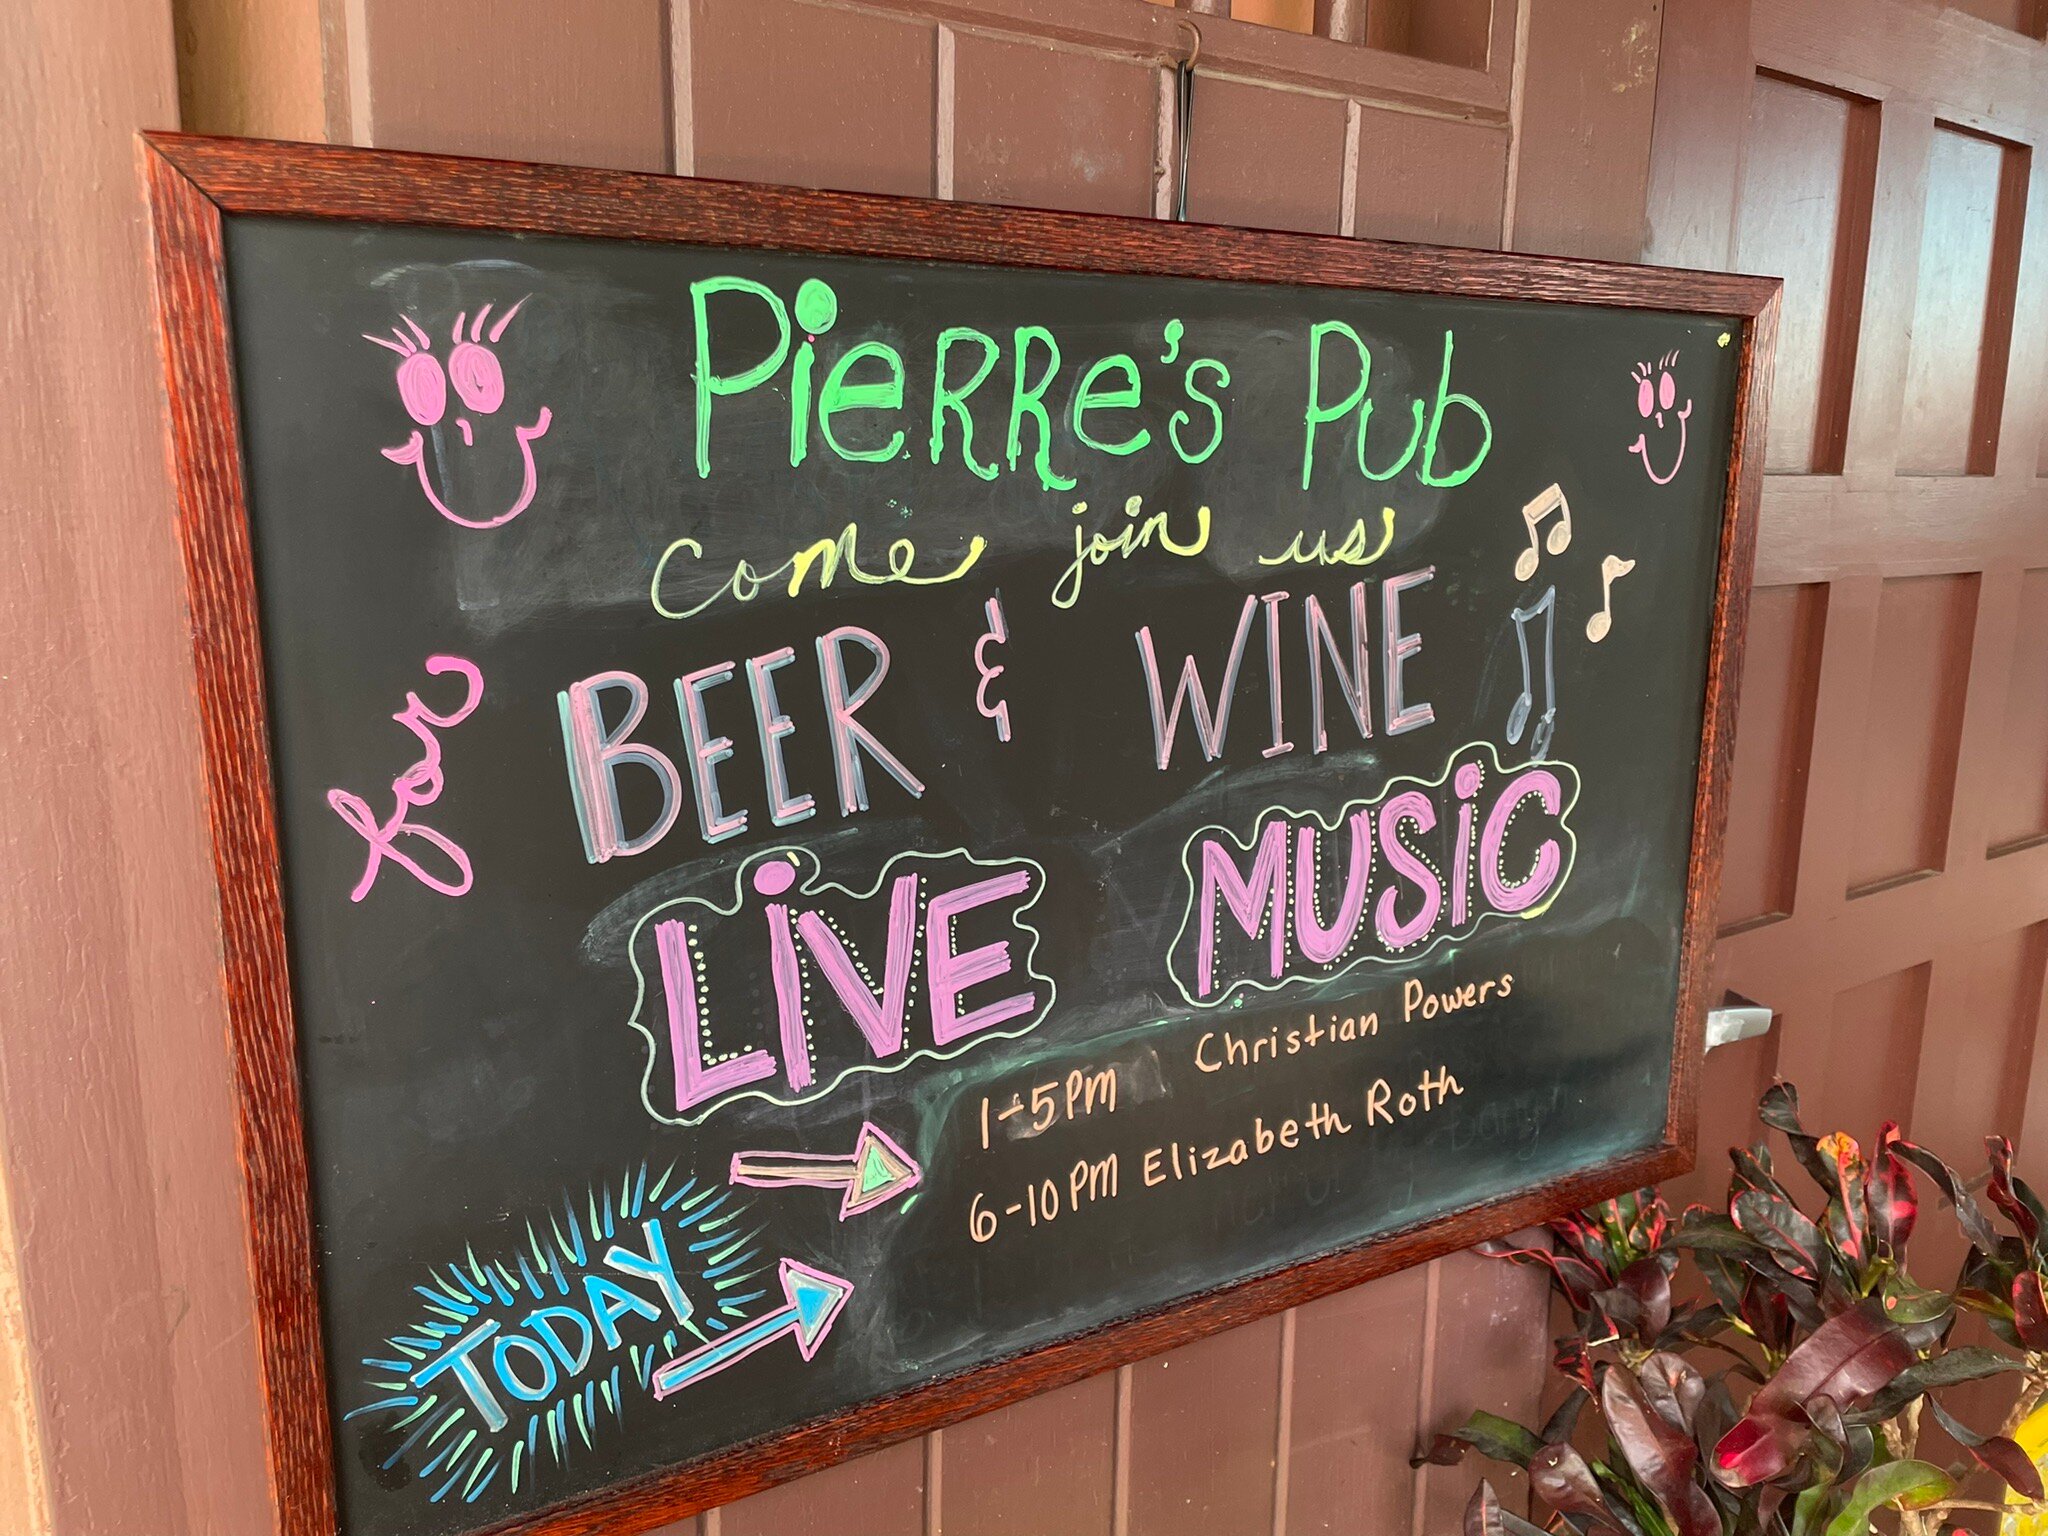 Pierre's Pub
come join us
for
BEER & WINE
LiVE MUSiC
1-5PM Christian Powers
6-10PM Elizabeth Roth
TODAY